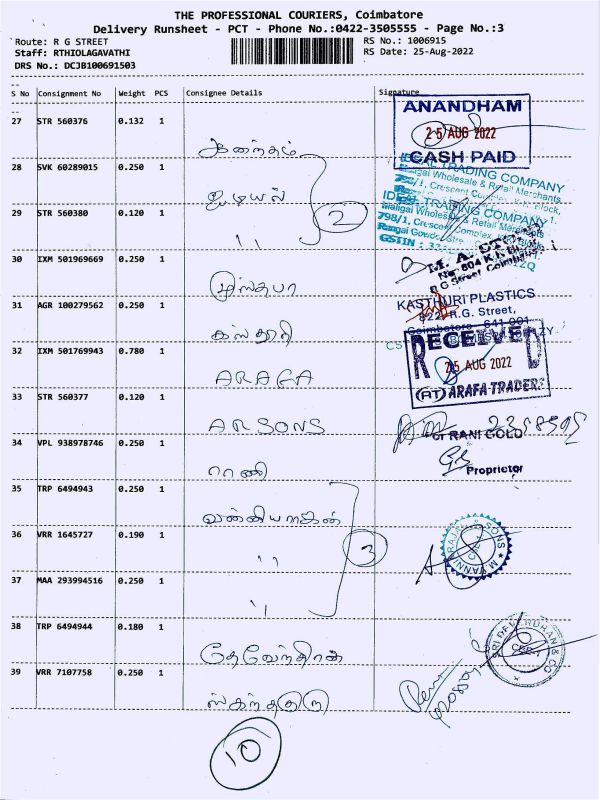 THE PROFESSIONAL COURIERS, Coimbatore
Delivery Runsheet - PCT - Phone No.:0422-3505555 - Page No.:3
Route: R G STREET
RS No.: 1006915
Staff: RTHIOLAGAVATHI
RS Date: 25-Aug-2022
DRS No.: DCJB100691503
S No Consignment No Weight PCS Consignee Details Signature
27 STR 560376 0.132 1
ANANDHAM
25 AUG 2022
CASH PAID
ஆனந்தம்
28 SVK 60289015 0.250 1
IDEAL TRADING COMPANY
Maligai Wholesale & Retail Merchants
ஐடியல்
29 STR 560380 0.120 1
2
IDEAL TRADING COMPANY
Maligai Wholesale & Retail Merchants
798/1, Crescent Complex, K.K. Block,
Rangai Gowder
GSTIN :
''
30 IXM 501969669 0.250 1
M. A.
No: 804 K.K.
R G Street Coimbatore
முஸ்தபா
31 AGR 100279562 0.250 1
KASTHURI PLASTICS
822, R.G. Street,
Coimbatore - 641 001
கஸ்தூரி
32 IXM 501769943 0.780 1
RECEIVED
25 AUG 2022
(AT) ARAFA TRADERS
ARAFA
33 STR 560377 0.120 1
ARSONS
34 VPL 938978746 0.250 1
RANI GOLD
Proprietor
ராணி
35 TRP 6494943 0.250 1
வன்னியராஜன்
36 VRR 1645727 0.190 1
''
3
37 MAA 293994516 0.250 1
''
38 TRP 6494944 0.180 1
தேவேந்திரன்
39 VRR 7107758 0.250 1
ஸ்கந்தகுரு
10